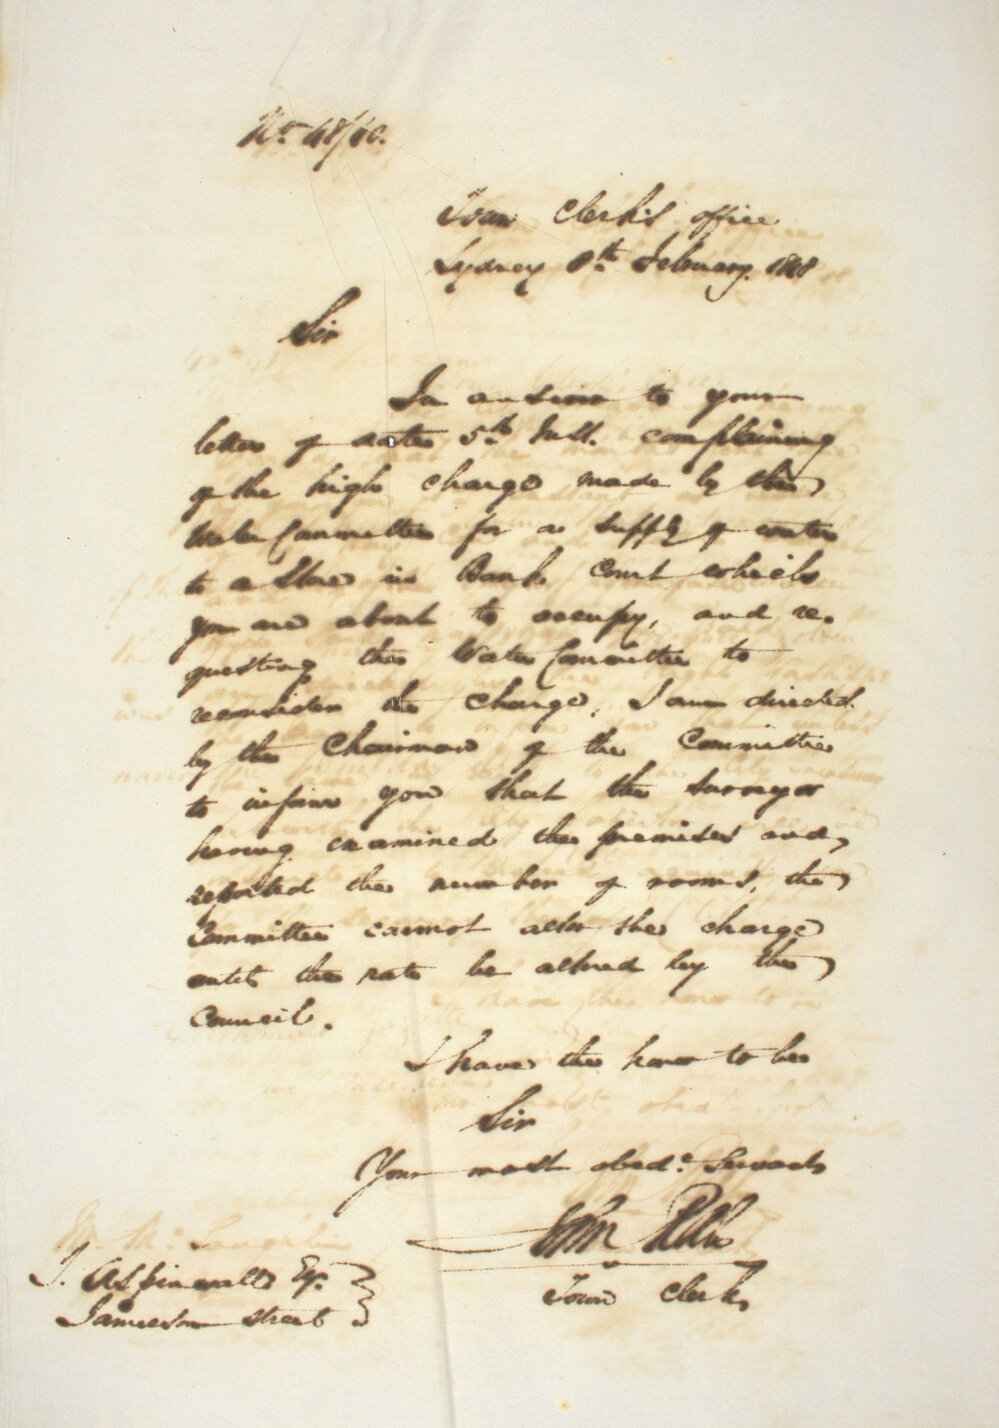 No. 48/60.
Town Clerk's office
Sydney 8th February. 1848
Sir
In answer to your
letter of date 5th Inst. complaining
of the high charge made by the
Water Committee for a supply of water
to a Store in Bank Court which
you are about to occupy, and re-
questing the Water Committee to
reconsider the charge, I am directed
by the Chairman of the Committee
to inform you that the Surveyor
having examined the premises and
reported the number of rooms, the
Committee cannot alter the charge
until the rate be altered by the
Council.
I have the honor to be
Sir
Your most obedt. Servant
John
Town Clerk
J. Aspinwall Esqr.
Jamieson Street